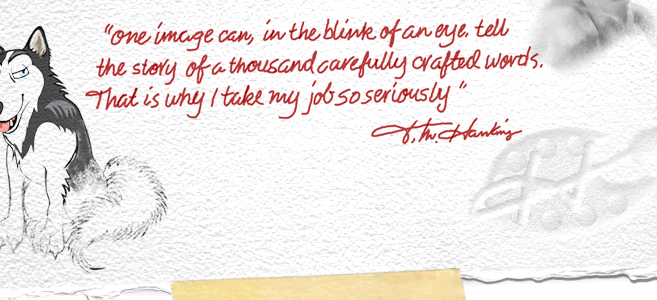 "One image can, in the blink of an eye. tell
the story of a thousand carefully crafted words.
That is why I take my job so seriously "